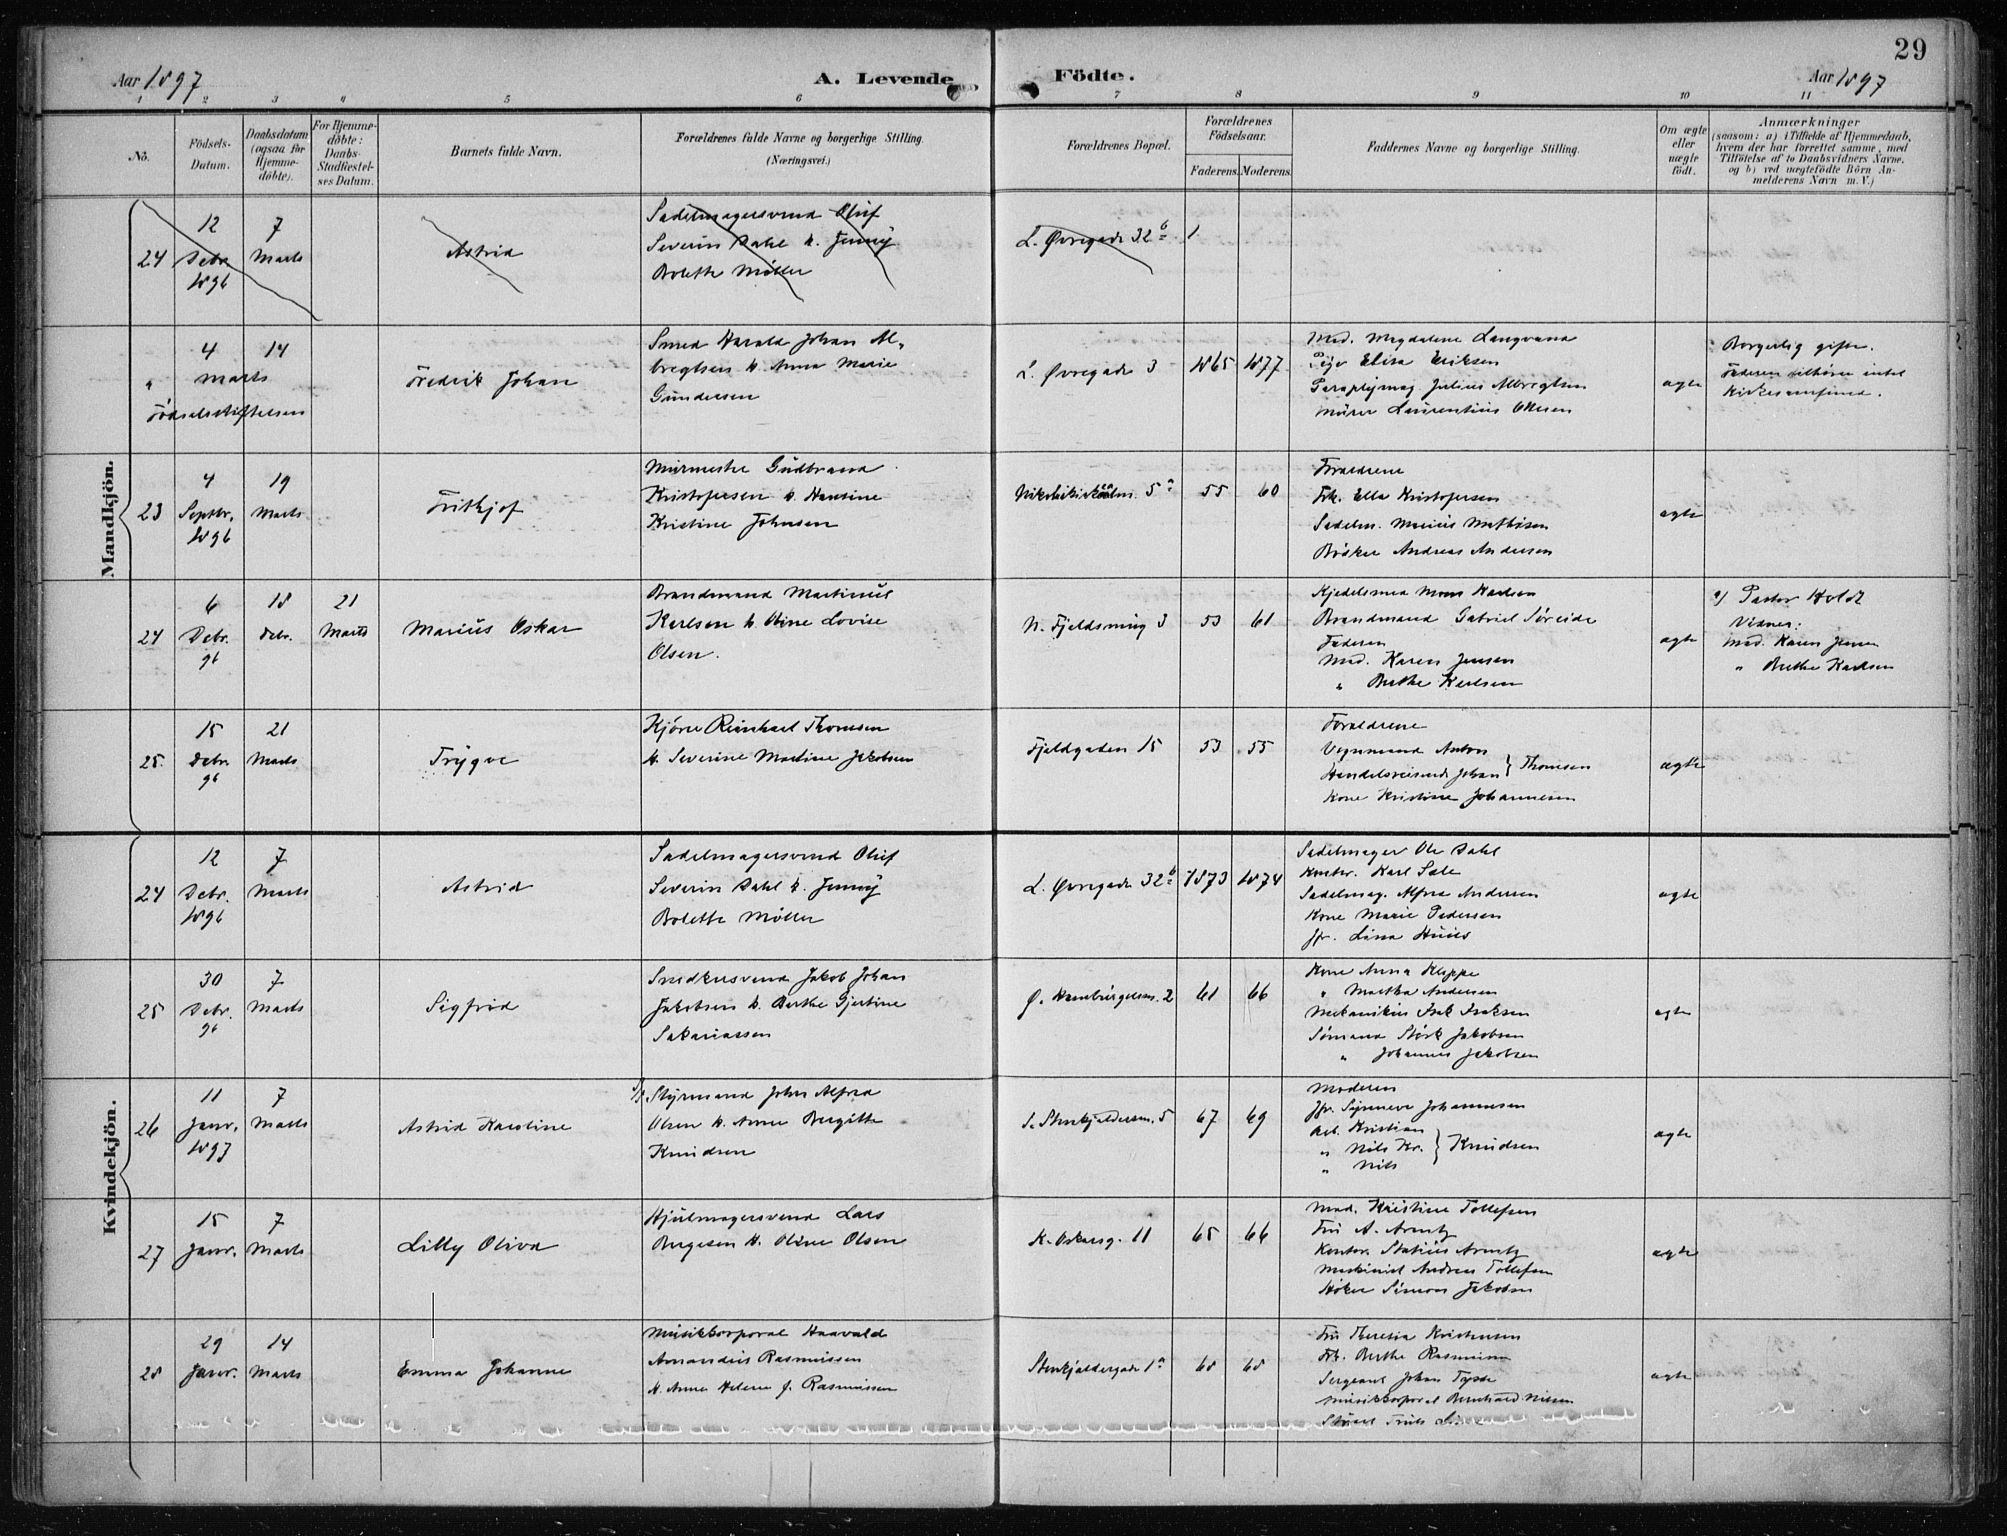 29
Aar 1897
A. Levende
Födte.
Aar 1897
1 2 3 4 5 6 7 8 9 10 11
No.
Födsels-
Datum.
Daabsdatum
(ogsaa for
Hjemme-
döbte).
For Hjemme-
döbte:
Daabs-
Stadfæstel-
ses Datum.
Barnets fulde Navn.
Forældrenes fulde Navne og borgerlige Stilling.
(Næringsvei.)
Forældrenes Bopæl.
Forældrenes
Födselsaar.
Faderens. Moderens.
Faddernes Navne og borgerlige Stilling.
Om ægte
eller
uægte
född.
Anmærkninger
(saasom: a) i Tilfælde af Hjemmedaab,
hvem der har forrettet samme, med
Tilföielse af to Daabsvidners Navne.
og b) ved uægtefödte Börn An-
melderens Navn m. V.)
Mandkjön.
24
12
Debr.
1896
7
Marts
Astrid
Sadelmagersvend Oluf
Severin Dahl h. Jenny
Bolette Møller
L. Øvregade 32 b
"
4
Marts
14
Fødselsstiftelsen
Fredrik Johan
Smed Harald Johan Al-
bregtsen h. Anna Marie
Gundersen
L. Øvregade 3
1865 1877
Mad. Magdalene Langvand
Pige Elisa Eriksen
Paraplymag. Julius Albregtsen
Murer Laurentius Olsen
ægte
Borgerlig gifte.
Faderen tilhører intet
Kirkesamfund.
23
4
Septbr.
1896
19
Marts
Frithjof
Murmester Gudbrand
Kristofersen h. Hansine
Kristine Johnsen
Nikolaikirkealm. 5 a
55 60
Forældrene
Frk. Ella Kristofersen
Sadelm. Marius Mathisen
Bøsker Andreas Andersen
ægte
24
6
Debr.
96
18
Debr.
21
Marts
Marius Oskar
Brandmand Martinus
Karlsen h. Oline Lovise
Olsen.
N. Fjeldsmug 3
53 61
Kjedelsmed Mons Karlsen
Brandmand Gabriel Søreide
Faderen
Mad. Karen Jensen
" Berthe Karlsen
ægte
a) Pastor Holdt
Vidner:
Mad. Karen Jensen
" Berthe Karlsen
25.
15
Debr.
96
21
Marts
Trygve
Kjører Reinhael Thomsen
h. Severine Martine Jakobsen
Fjeldgaden 15
53 55
Forældrene
Vognmand Anton
Handelsreisende Johan } Thomsen
Kone Kristine Johannesen
ægte
Kvindekjön.
24
12
Debr.
1896
7
Marts
Astrid
Sadelmagersvend Oluf
Severin Dahl h. Jenny
Bolette Møller
L. Øvregade 32 b
1873 1874
Sadelmager Ole Dahl
Karl Sæle
Sadelmag. Alfred Andersen
Kone Marie Pedersen
Jfr. Lina
ægte
25
30
Debr.
96
7
Marts
Sigfrid
Smedkersvend Jakob Johan
Jakobsen h. Berthe Gjertine
Sakariassen
Ø. Hamburgersm. 2
61 66
Kone Anna Kleppe
" Martha Andersen
Mekanikus Isak Isaksen
Sømand Størk Jakobsen
" Johannes Jakobsen
ægte
26
11
Janr.
1897
7
Marts
Astrid Karoline
Styrmand John Alfred
Olsen h. Anne Bergitte
Knudsen
S. Stenkjeldersm. 5
67 69
Moderen
Jfr. Synneve Johannesen
Arb. Kristian
" Nils Kr. } Knudsen
" Nils
ægte
27
15
Janr.
7
Marts
Lilly Oliva
Hjulmagersvend Lars
Bergesen h. Oline Olsen
K. Oskarsg. 11
65 66
Mad. Kristine Tollefsen
Fru A. Arentz
Kontor. Statius Arentz
Maskinist Andreas Tollefsen
Høker Simon Jakobsen
ægte
28
29
Janr.
14
Marts
Emma Johanne
Musikkorporal Haavald
Amandus Rasmussen
h. Anne Helene f. Rasmussen
Stenkjeldergade 1 a
68 68
Fru Theresia Kristensen
Frk. Berthe Rasmussen
Sergeant Johan Tysse
Musikkorporal Bernhard Nilsen
ægte